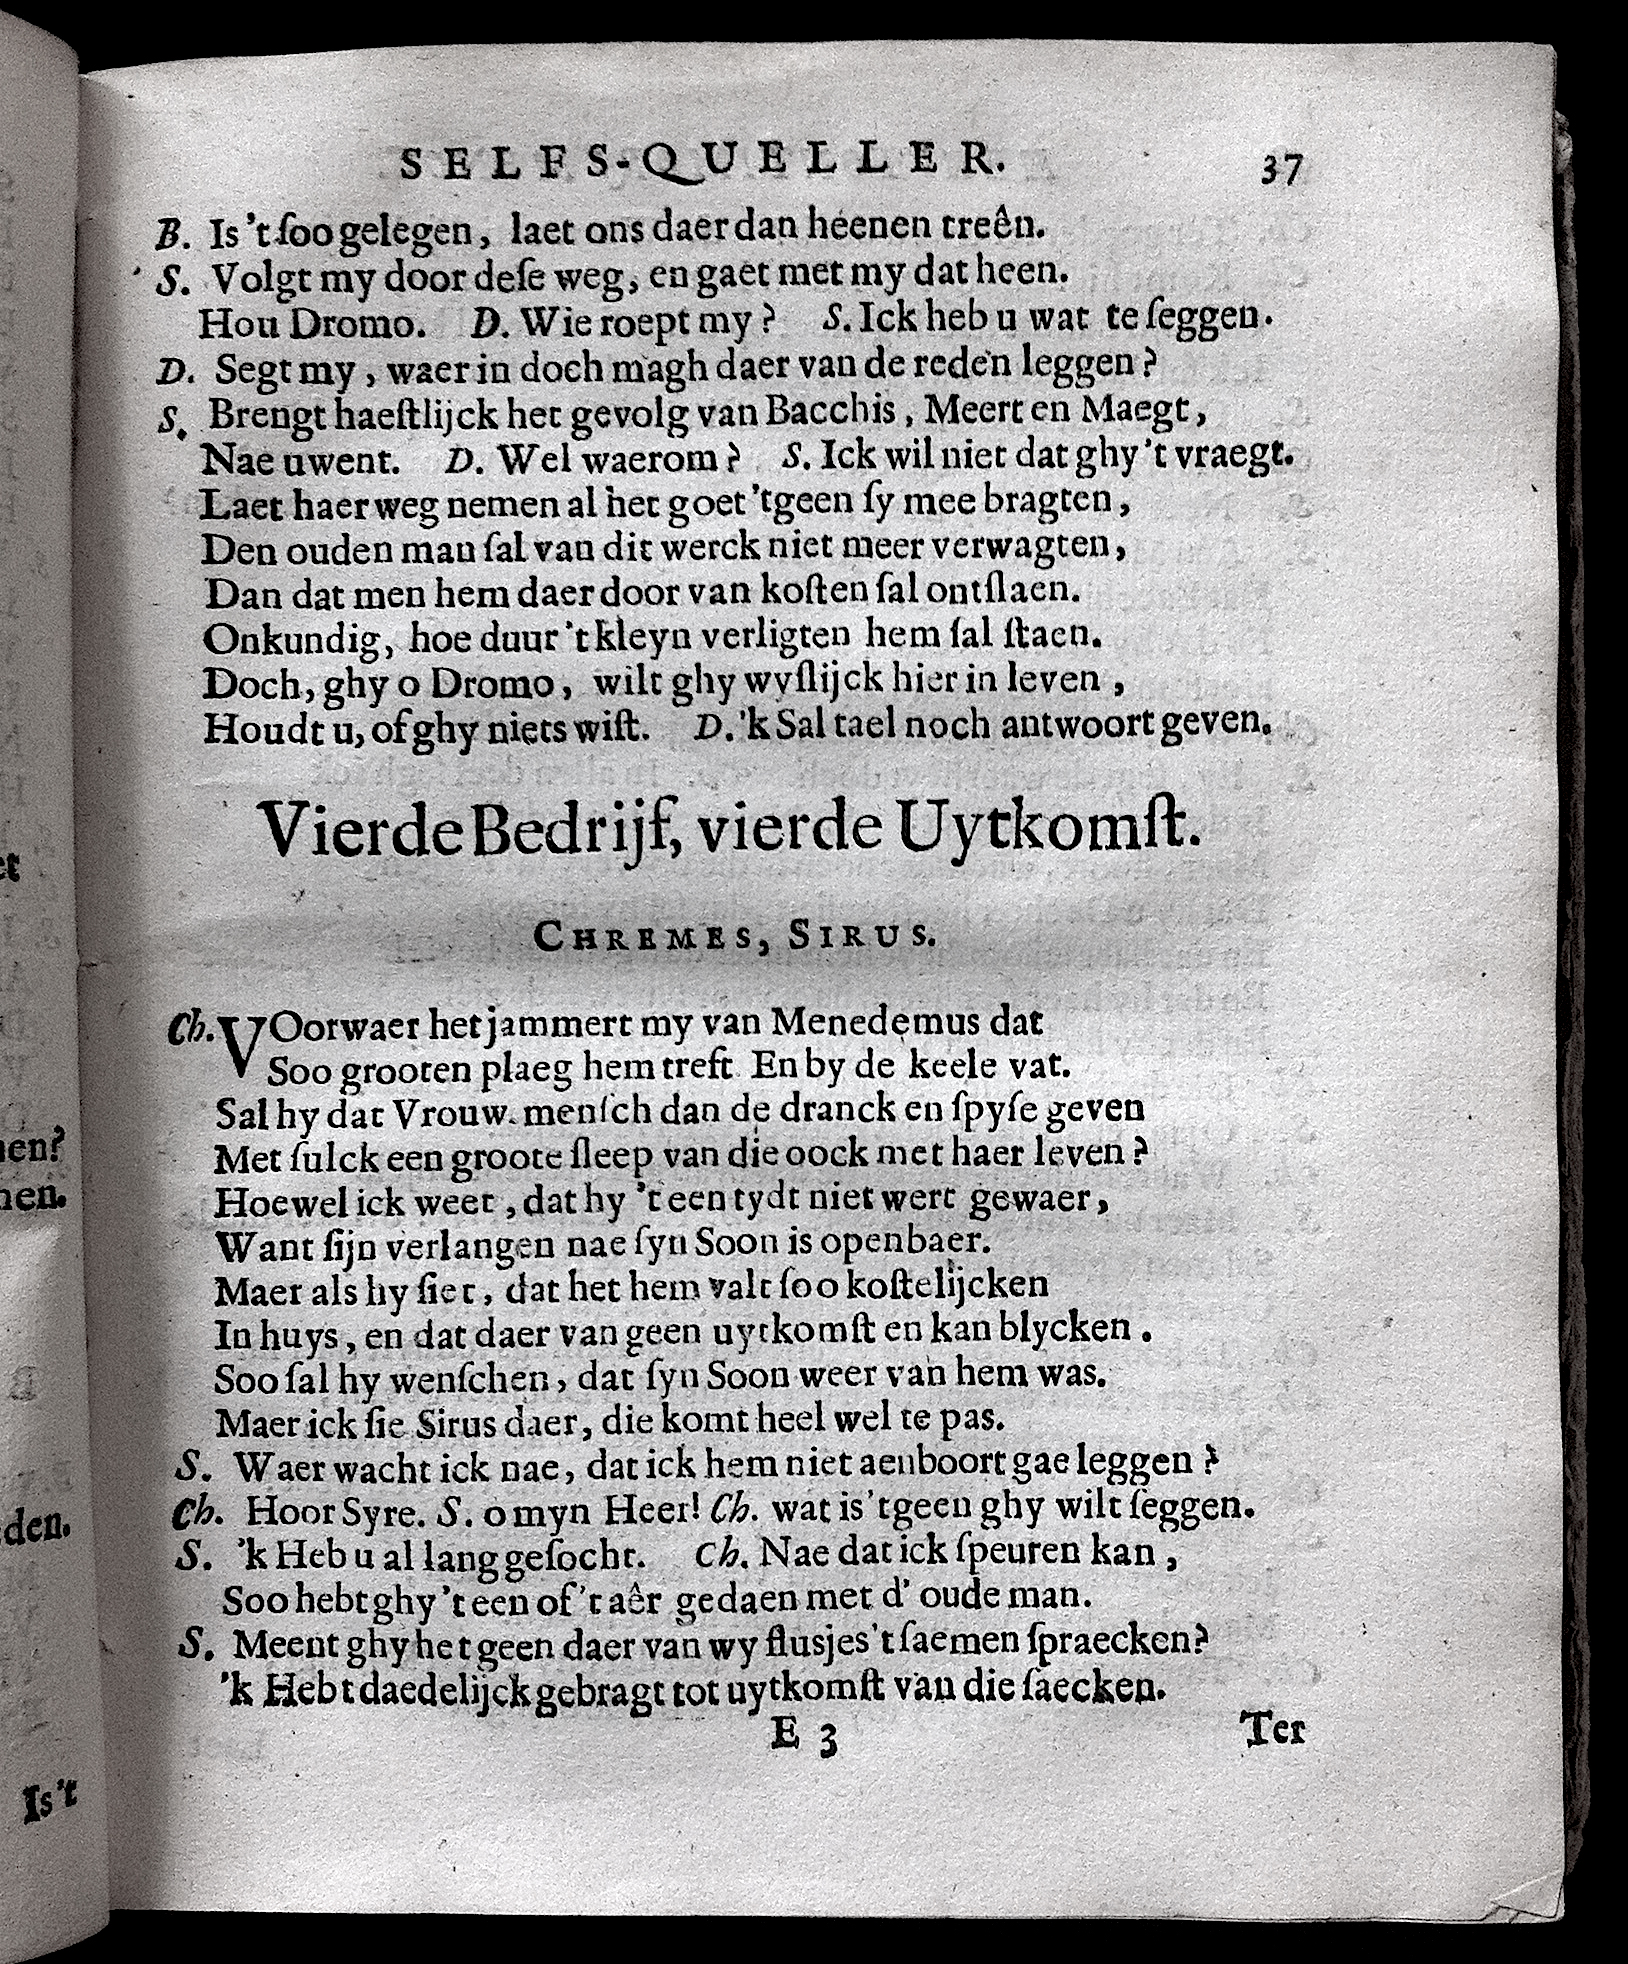 SELFS-QUELLER. 37
B. Is 't ſoo gelegen, laet ons daer dan heenen treên.
S. Volgt my door deſe weg, en gaet met my dat heen.
Hou Dromo. D. Wie roept my? S. Ick heb u wat te ſeggen.
D. Segt my, waer in doch magh daer van de reden leggen?
S. Brengt haeſtlijck het gevolg van Bacchis, Meert en Maegt,
Nae uwent. D. Wel waerom? S. Ick wil niet dat ghy 't vraegt.
Laet haer weg nemen al het goet 'tgeen ſy mee bragten,
Den ouden man ſal van dit werck niet meer verwagten,
Dan dat men hem daer door van koſten ſal ontſlaen.
Onkundig, hoe duur 't kleyn verligten hem ſal ſtaen.
Doch, ghy o Dromo, wilt ghy wyſlijck hier in leven,
Houdt u, of ghy niets wiſt. D. 'k Sal tael noch antwoort geven.
Vierde Bedrijf, vierde Uytkomſt.
CHREMES, SIRUS.
Ch. VOorwaer het jammert my van Menedemus dat
Soo grooten plaeg hem treft En by de keele vat.
Sal hy dat Vrouw-menſch dan de dranck en ſpyſe geven
Met ſulck een groote ſleep van die oock met haer leven?
Hoewel ick weet, dat hy 't een tydt niet wert gewaer,
Want ſijn verlangen nae ſyn Soon is openbaer.
Maer als hy ſiet, dat het hem valt ſoo koſtelijcken
In huys, en dat daer van geen uytkomſt en kan blycken.
Soo ſal hy wenſchen, dat ſyn Soon weer van hem was.
Maer ick ſie Sirus daer, die komt heel wel te pas.
S. Waer wacht ick nae, dat ick hem niet aenboort gae leggen?
Ch. Hoor Syre. S. o myn Heer! Ch. wat is 'tgeen ghy wilt ſeggen.
S. 'k Heb u al lang geſocht. Ch. Nae dat ick ſpeuren kan,
Soo hebt ghy 't een of 't aêr gedaen met d' oude man.
S. Meent ghy het geen daer van wy fluſjes 't ſaemen ſpraecken?
'k Heb t daedelijck gebragt tot uytkomſt van die ſaecken.
E 3 Ter
den.
Is't